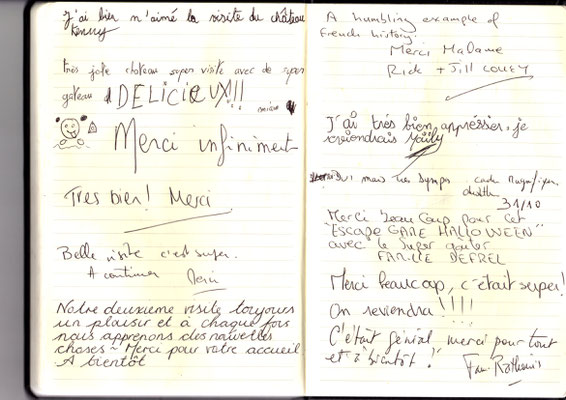 J'ai bien m'aimé la visite du château
très jolie chateau super visite avec de super
gateau DELICIEUX!!!
Merci infiniment
Tres bien! Merci
Belle visite c'est super.
A continuer Merci
Notre deuxième visite toujours
un plaisir et à chaque fois
nous apprenons des nouvelles
choses - Merci pour votre accueil
A bientôt
A humbling example of
French history.
Merci Madame
Rick + Jill
J'ai très bien appréssier, je
reviendrais
mais très sympa
31/10
Merci beaucoup pour cet
"ESCAPE GAME HALLOWEEN"
avec le super gouter
FAMILLE DEFREL
Merci beaucoup, c'était super!
On reviendra!!!!
C'était génial merci pour tout
et à bientôt!